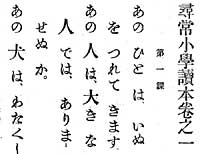 尋常小學讀本卷之一
第一課
あのひとは、いぬ
をつれてきます
あの人は、大きな
人では、ありま
せぬか。
あの犬は、わたく